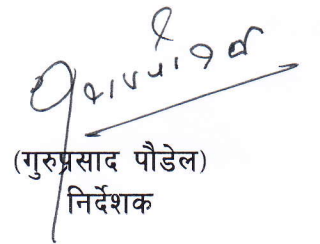 (गुरुप्रसाद पौडेल)
निर्देशक